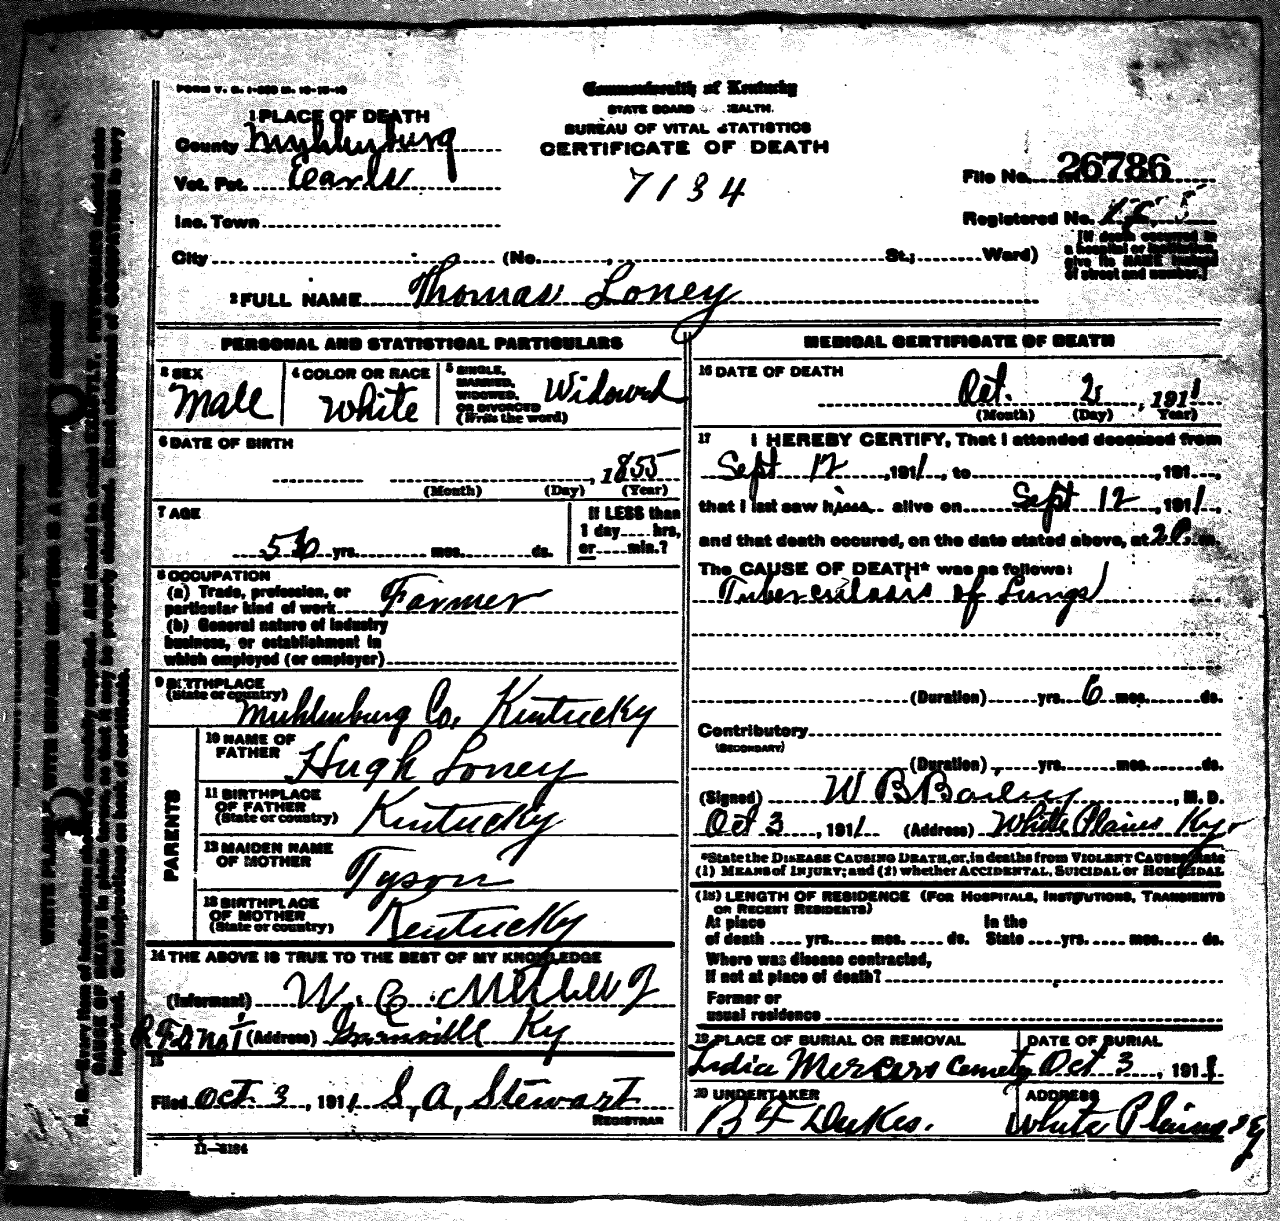 Commonwealth of Kentucky
STATE BOARD OF HEALTH.
BUREAU OF VITAL STATISTICS
CERTIFICATE OF DEATH
7134
1 PLACE OF DEATH
County Muhlenburg
Vot. Pct. Earls
Inc. Town
City (No. St.; Ward)
File No. 26786
Registered No.
[If death occurred in
a hospital or institution,
give its NAME instead
of street and number.]
2 FULL NAME Thomas Loney
PERSONAL AND STATISTICAL PARTICULARS
3 SEX
Male
4 COLOR OR RACE
White
5 SINGLE,
MARRIED,
WIDOWED,
OR DIVORCED
(Write the word)
Widowed
6 DATE OF BIRTH
, 1855
(Month) (Day) (Year)
7 AGE
56 yrs. mos. ds.
If LESS than
1 day hrs,
or min.?
8 OCCUPATION
(a) Trade, profession, or
particular kind of work Farmer
(b) General nature of industry
business, or establishment in
which employed (or employer)
9 BIRTHPLACE
(State or country)
Muhlenburg Co, Kentucky
PARENTS
10 NAME OF
FATHER
Hugh Loney
11 BIRTHPLACE
OF FATHER
(State or country)
Kentucky
12 MAIDEN NAME
OF MOTHER
Tyson
13 BIRTHPLACE
OF MOTHER
(State or country)
Kentucky
14 THE ABOVE IS TRUE TO THE BEST OF MY KNOWLEDGE
(Informant) W. C.
(Address) Greenville Ky
15
Filed Oct 3, 1911 S, A, Stewart
REGISTRAR
11—3184
MEDICAL CERTIFICATE OF DEATH
16 DATE OF DEATH
Oct. 2, 1911
(Month) (Day) Year)
17 I HEREBY CERTIFY, That I attended deceased from
Sept 12, 1911, to , 191
that I last saw him alive on Sept 12, 1911,
and that death occured, on the date stated above, at 2 P. m.
The CAUSE OF DEATH* was as follows:
Tuberculosis of Lungs
(Duration) yrs. 6 mos. ds.
Contributory
(SECONDARY)
(Duration) yrs. mos. ds.
(Signed) W B Bailey, M. D.
Oct 3, 1911 (Address) White Plains Ky
*State the DISEASE CAUSING DEATH, or, in deaths from VIOLENT CAUSES, state
(1) MEANS of INJURY; and (2) whether ACCIDENTAL, SUICIDAL or HOMICIDAL
(18) LENGTH OF RESIDENCE (FOR HOSPITALS, INSTITUTIONS, TRANSIENTS
OR RECENT RESIDENTS)
At place In the
of death yrs. mos. ds. State yrs. mos. ds.
Where was disease contracted,
If not at place of death?
Former or
usual residence
19 PLACE OF BURIAL OR REMOVAL
Lidia Mercers Cemety
DATE OF BURIAL
Oct 3, 1911
20 UNDERTAKER
B F Dukes.
ADDRESS
White Plains Ky